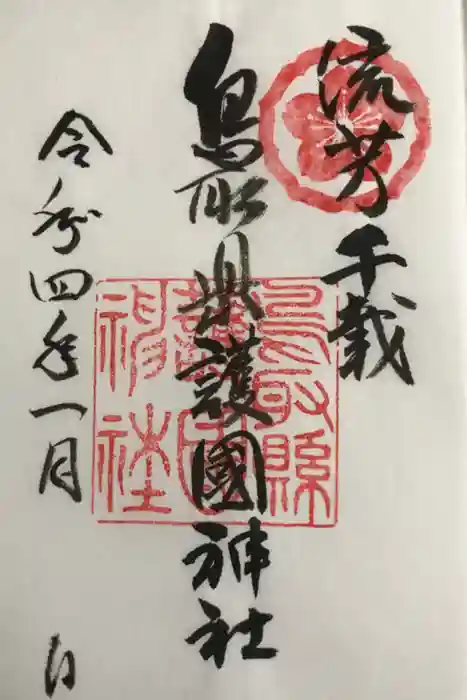 流芳千載
鳥取県護國神社
令和四年一月
日
鳥取縣
護國
神社